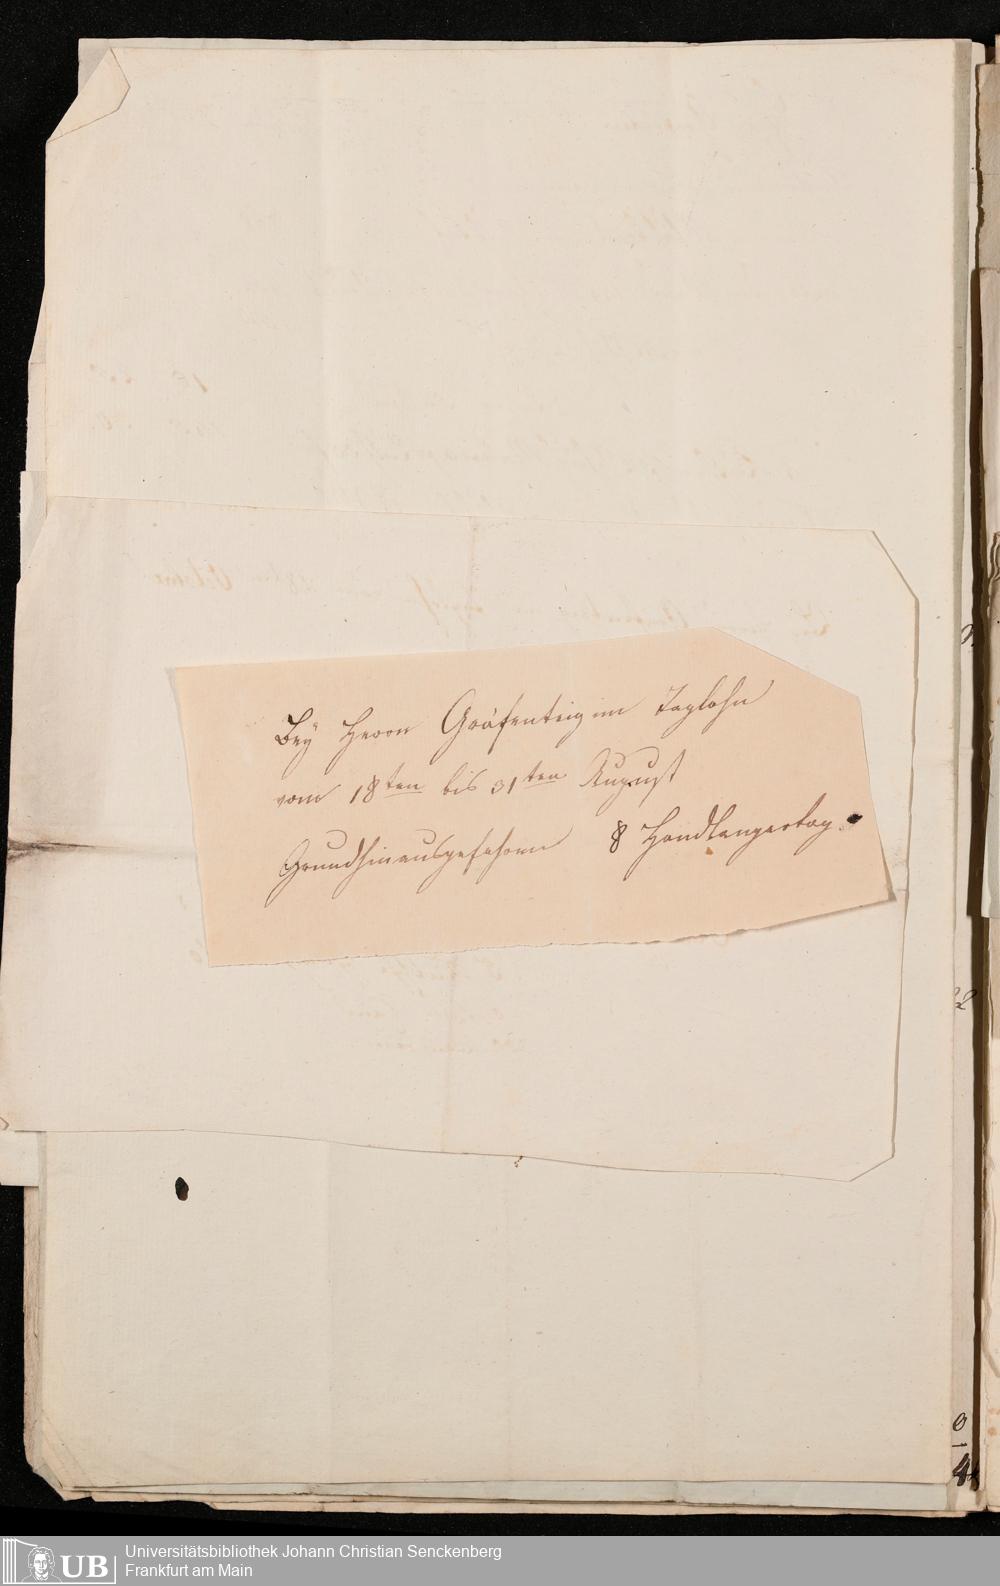 Bey Herrn Gräfenteig im Taglohn
vom 18ten bis 31ten August
Grund hinausgefahren 8 Handlangertag
UB
Universitätsbibliothek Johann Christian Senckenberg
Frankfurt am Main